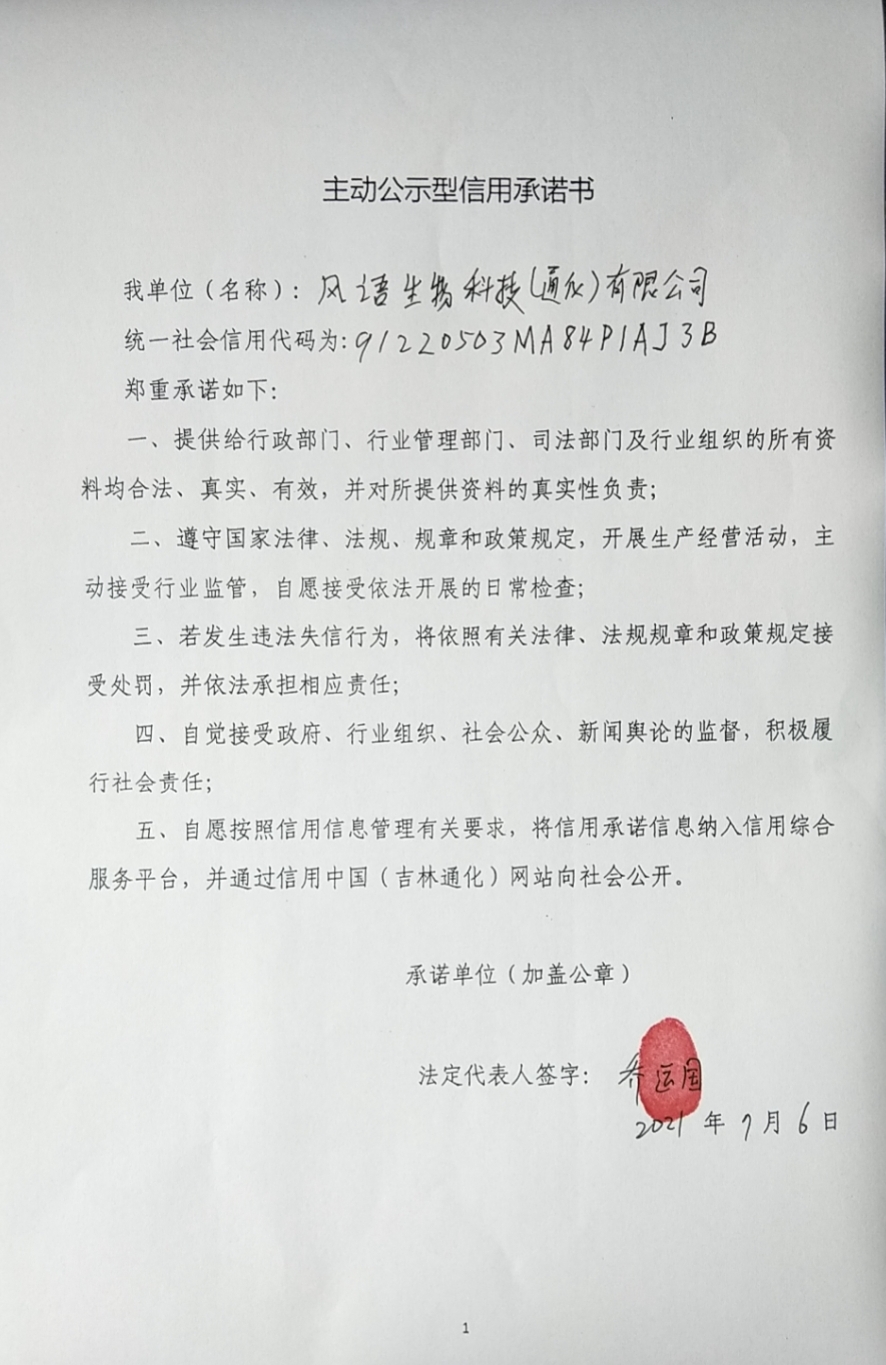 主动公示型信用承诺书
我单位（名称）：风语生物科技（通化）有限公司
统一社会信用代码为：91220503MA84P1AJ3B
郑重承诺如下：
一、提供给行政部门、行业管理部门、司法部门及行业组织的所有资
料均合法、真实、有效，并对所提供资料的真实性负责；
二、遵守国家法律、法规、规章和政策规定，开展生产经营活动，主
动接受行业监管，自愿接受依法开展的日常检查；
三、若发生违法失信行为，将依照有关法律、法规规章和政策规定接
受处罚，并依法承担相应责任；
四、自觉接受政府、行业组织、社会公众、新闻舆论的监督，积极履
行社会责任；
五、自愿按照信用信息管理有关要求，将信用承诺信息纳入信用综合
服务平台，并通过信用中国（吉林通化）网站向社会公开。
承诺单位（加盖公章）
法定代表人签字：乔运国
2021年7月6日
1